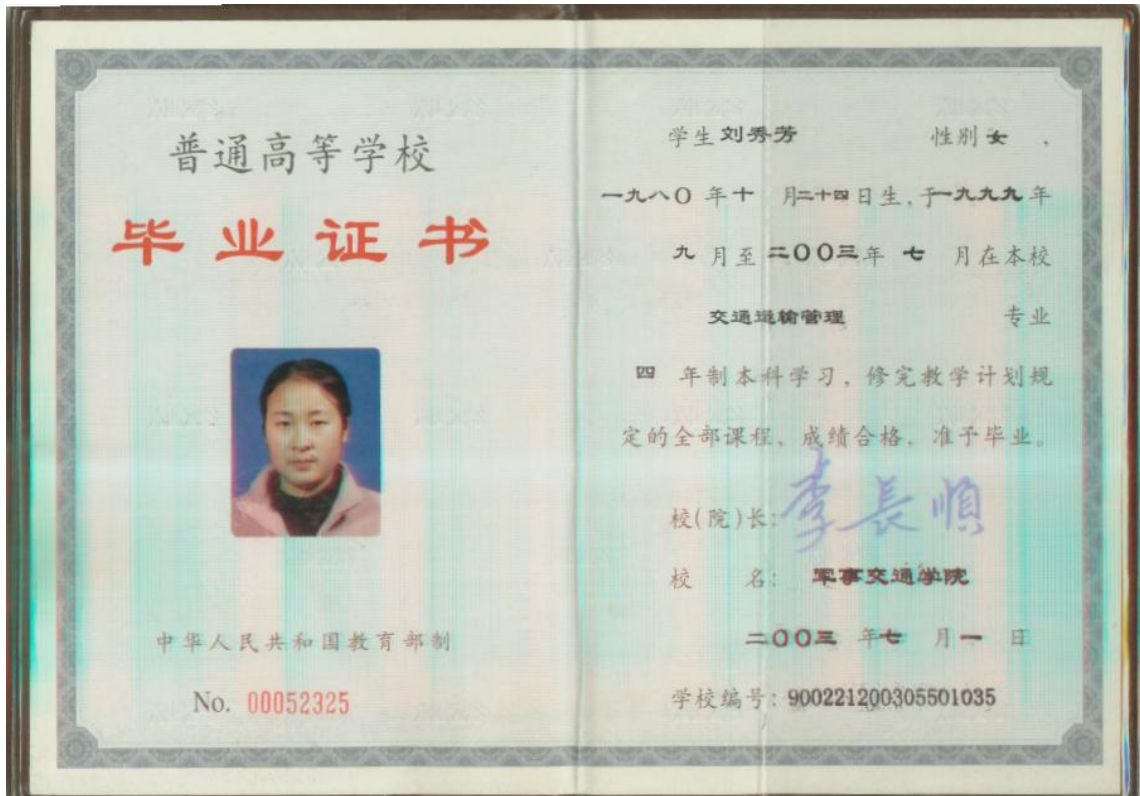 普通高等学校
毕业证书
中华人民共和国教育部制
No. 00052325
学生 刘秀芳 性别 女 ,
一九八〇 年 十 月 二十四 日生, 于 一九九九 年
九 月至 二〇〇三 年 七 月在本校
交通运输管理 专业
四 年制本科学习, 修完教学计划规
定的全部课程, 成绩合格, 准予毕业。
校(院)长: 李長順
校 名: 军事交通学院
二〇〇三 年 七 月 一 日
学校编号: 900221200305501035